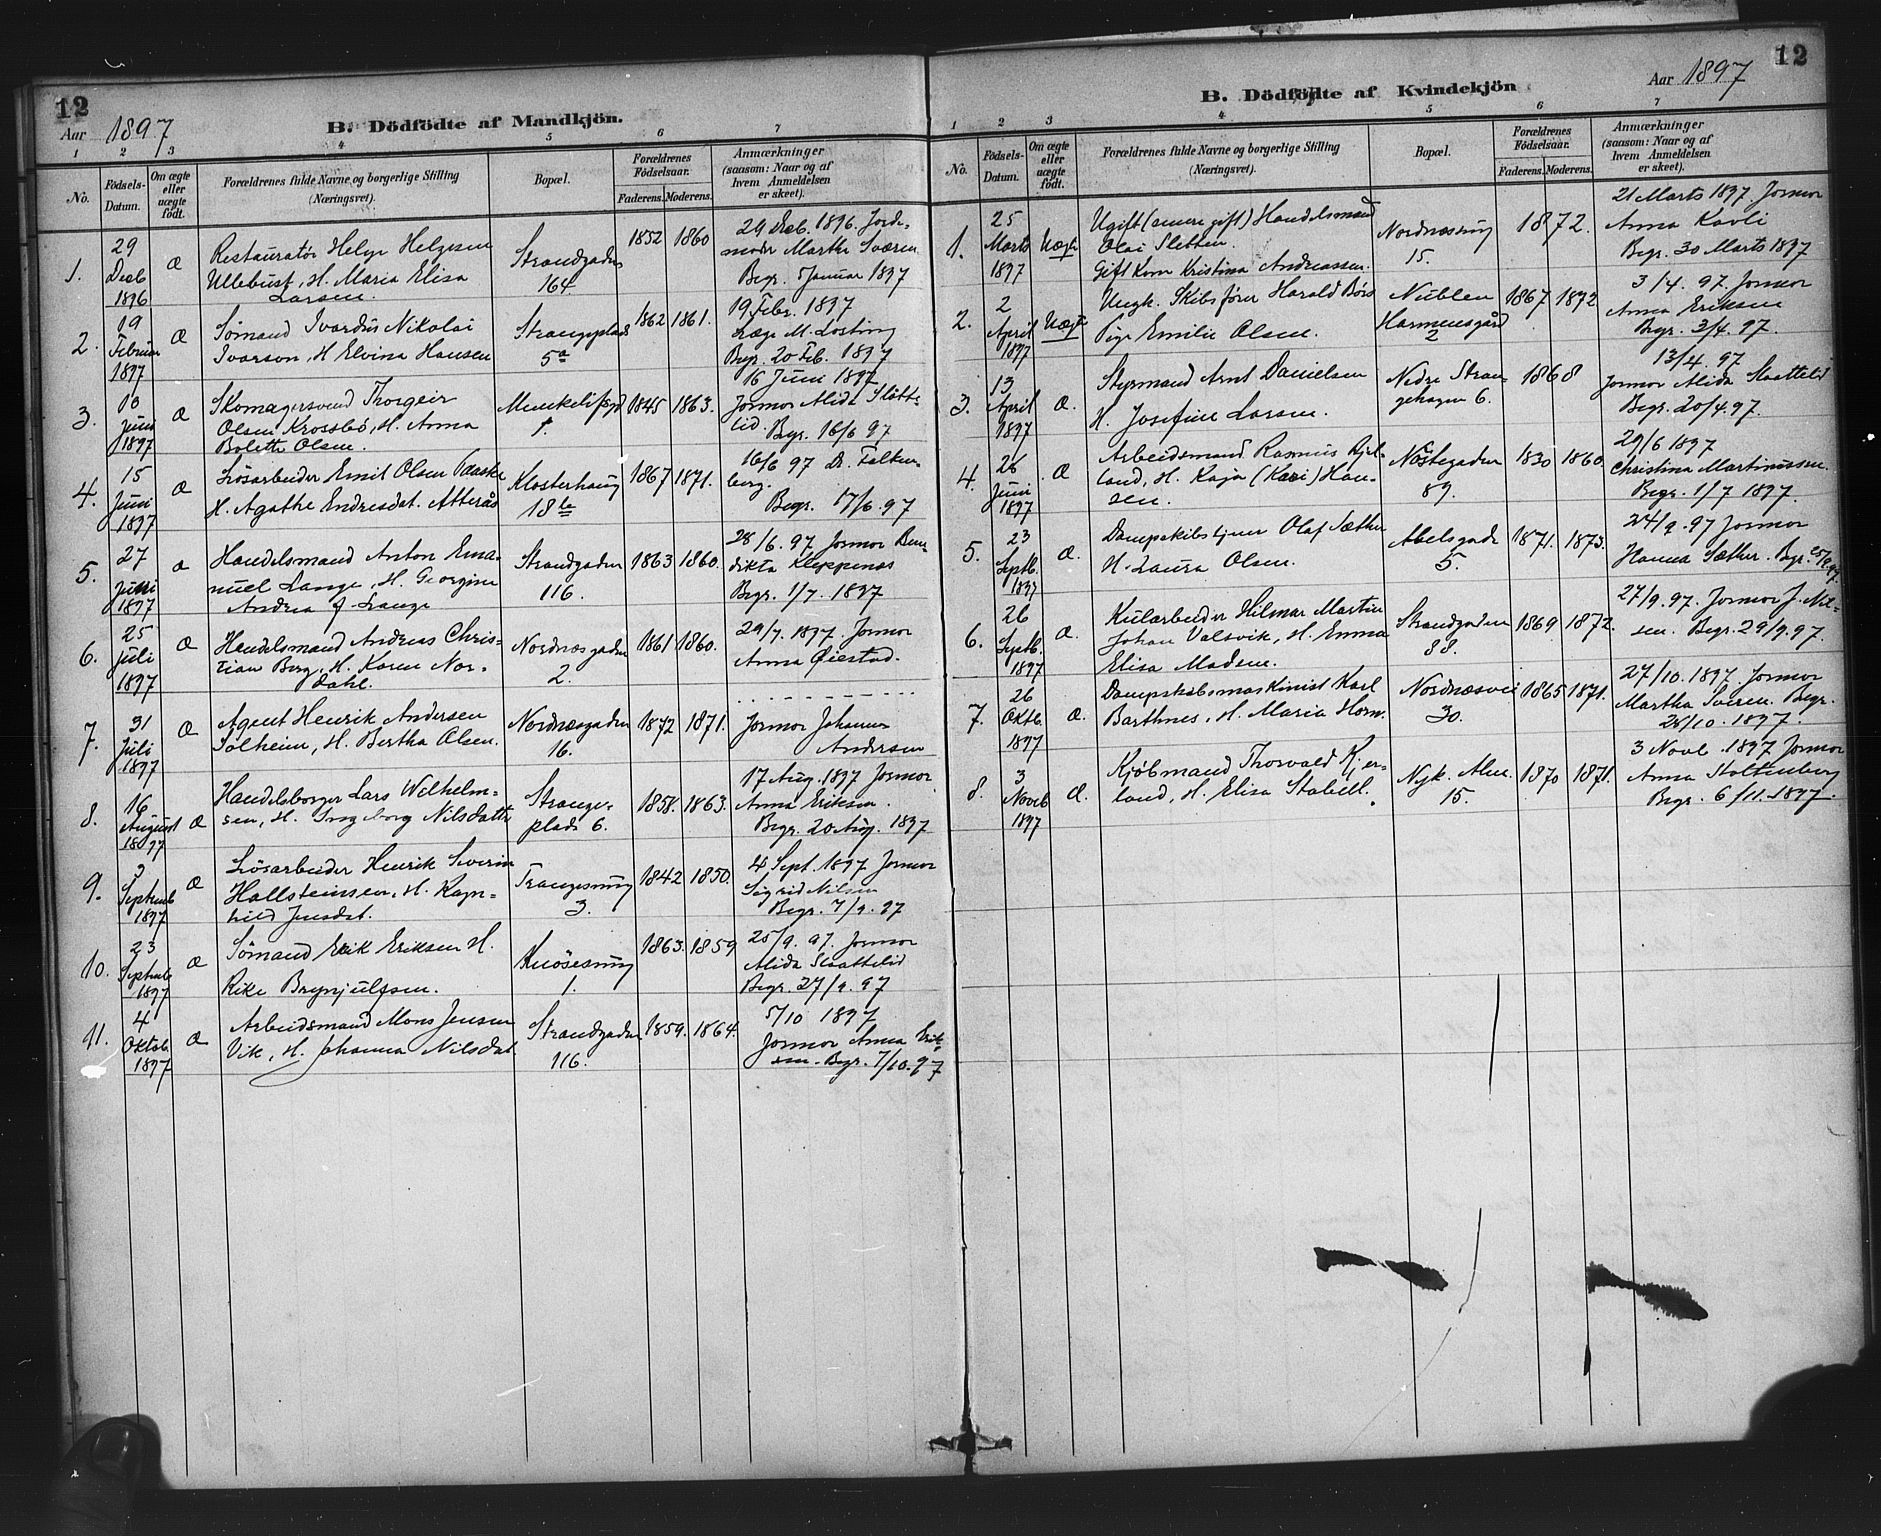 12
Aar 1897
B. Dödfödte af Mandkjön.
1 2 3 4 5 6 7
No.
Födsels-Datum.
Om ægte eller uægte födt.
Forældrenes fulde Navne og borgerlige Stilling (Næringsvei).
Bopæl.
Forældrenes Födselsaar.
Faderens. Moderens.
Anmærkninger (saasom: Naar og af hvem Anmeldelsen er skeet).
1. 29 Decb 1896 æ
Restauratør Helge Helgesen
Ullebust, H. Maria Elisa
Larsen.
Strandgaden
164
1852 1860
29 Decb. 1896. Jorde-
moder Martha Sværen
Begr. 5 Januar 1897
2. 19 Februar 1897 æ
Sømand Ivardus Nikolai
Ivarson, H Elvina Hansen
Strangeplads
5a
1862 1861.
19 Febr. 1897
Læge M. Løsting
Begr. 20 Feb. 1897
3. 10 Juni 1897 æ
Skomagersvend Thorgeir
Olsen Krossbø, H. Anna
Bolette Olsen.
Munkelifsgd
1.
1845 1863.
16 Juni 1897
Jormor Alida Slótte-
lid. Begr. 16/6 97
4. 15 Juni 1897 æ
Løsarbeider Emil Olsen Vaaske
H. Agathe Endresdat. Atterås
Klosterhaug
18
1867 1871.
16/6 97 Dr. Falken-
berg.
Begr. 17/6. 97
5. 27 Juni 1897 æ
Handelsmand Anton Ema-
nuel Lange, H. Georgine
Andrea f. Lange
Strandgaden
116.
1863 1860.
28/6. 97 Jormor Bene-
dikta Kleppenæs
Begr. 1/7. 1897
6. 25 Juli 1897 æ
Handelsmand Andreas Chris-
tian Berg, H. Karen Nor-
dahl.
Nordnæsgaden
2.
1861 1860.
29/7. 1897 Jormor
Anna Øiestad.
7. 31 Juli 1897 æ
Agent Henrik Andersen
Solheim, H. Bertha Olsen.
Nordnæsgaden
16.
1872 1871.
Jormor Johanne
Andersen
8. 16 August 1897 æ
Handelsborger Lars Wilhelm-
sen, H. Ingeborg Nilsdatter
Strange-
plads 6.
1858. 1863.
17 Aug. 1897 Jormor
Anna Eriksen.
Begr. 20 Aug. 1897
9. 3 Septemb 1897 æ
Løsarbeider Henrik Severin
Hallsteinsen, H. Ragn-
hild Jensdat.
Trangesmug
3.
1842 1850.
4 Sept. 1897 Jormor
Sigrid Nilsen
Begr. 7/9. 97
10. 23 Septemb 1897 æ
Sømand Erik Eriksen H.
Rike Brynjulfsen.
Knøsesmug
1.
1863. 1859
25/9. 97. Jormor
Alida Slaattelid
Begr. 27/9. 97
11. 4 Oktob. 1897 æ
Arbeidsmand Mons Jensen
Vik, H. Johanna Nilsdat.
Strandgaden
116.
1859. 1864.
5/10 1897
Jormor Anna Erik-
sen. Begr. 7/10. 97
12
Aar 1897
B. Dödfödte af Kvindekjön
1 2 3 4 5 6 7
No.
Födsels-Datum.
Om ægte eller uægte födt.
Forældrenes fulde Navne og borgerlige Stilling (Næringsvei).
Bopæl.
Forældrenes Födselsaar.
Faderens. Moderens.
Anmærkninger (saasom: Naar og af hvem Anmeldelsen er skeet).
1. 25 Marts 1897 Uægte
Ugift Handelsmand
Olai Sletten.
Gift Kone Kristina Andreassen.
Nordnæssmug
15.
1872.
21 Marts 1897. Jormor
Anna Kavli
Begr. 30 Marts 1897
2. 2 April 1897 Uægte
Ungk. Skibsfører Harald Børs
Pige Emilie Olsen.
Nublen
Harmensgård
2
1867 1872
3/4. 97. Jormor
Anna Eriksen
Begr. 3/4. 97.
3. 13 April 1897 æ.
Styrmand Arnt Danielsen
H. Josefine Larsen.
Nedre Stran-
gehagen 6.
1868
13/4. 97
Jormor Alida Slaattelid
Begr. 20/4. 97.
4. 26 Juni 1897 æ
Arbeidsmand Rasmus Gjel-
land, H. Kaja (Kari) Han-
sen.
Nøstegaden
89.
1830 1860.
29/6 1897
Christina Martinussen.
Begr. 1/7 1897.
5. 23 Septb. 1897 æ.
Dampskibstjener Olaf Sæther
H. Laura Olsen.
Abelsgade
5.
1871. 1873.
24/9. 97 Jormor
Hanna Sæther. Begr. 25/9. 97.
6. 26 Septb. 1897 æ.
Kularbeider Hilmar Martin
Johan Valsvik, H. Emma
Elisa Madsen.
Strandgaden
88.
1869 1872.
27/9. 97. Jormor J. Nil-
sen. Begr. 29/9. 97.
7. 26 Oktb. 1897 æ.
Dampskibsmaskinist Karl
Barthnes, H. Maria Horn.
Nordnæsvei
30.
1865 1871.
27/10. 1897. Jormor
Martha Sværen. Begr.
28/10. 1897.
8. 3 Novb 1897 æ.
Kjøbmand Thorvald Kjer-
land, H. Elisa Stabell.
Nyk. Alm.
15.
1870 1871.
3 Novb. 1897 Jormor
Anna Stoltenberg
Begr. 6/11. 1897.